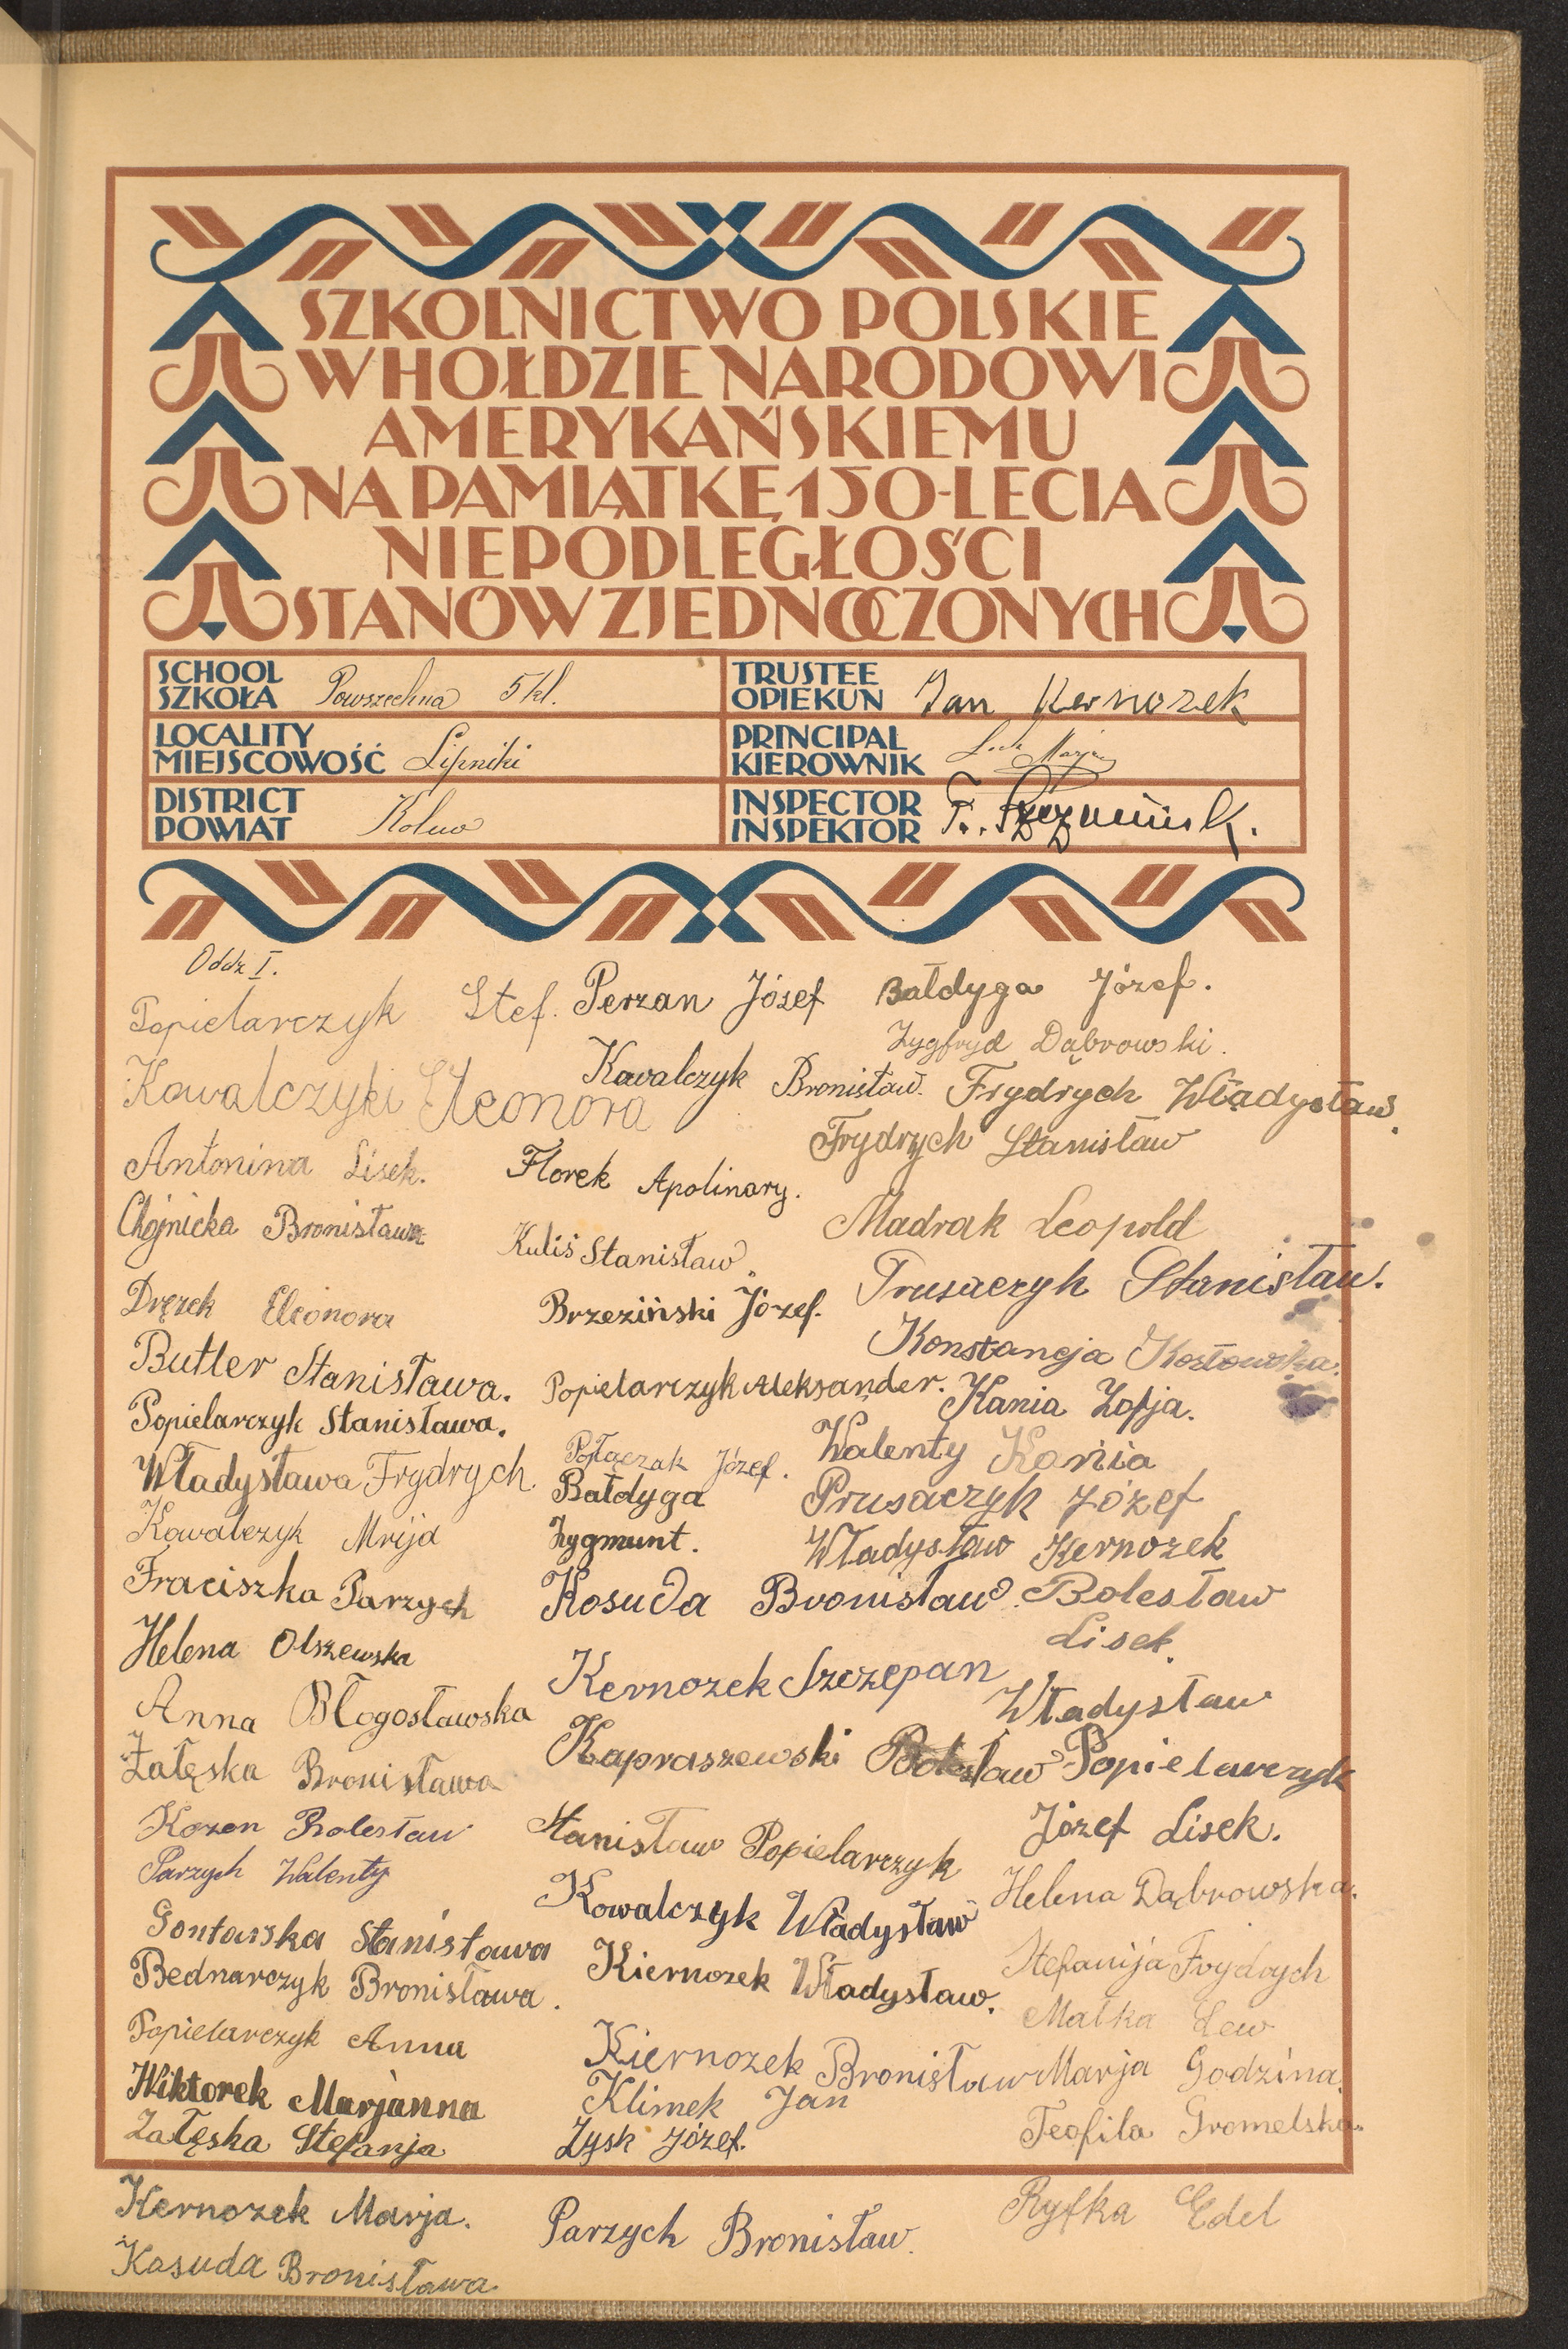 SZKOLNICTWO POLSKIE
W HOŁDZIE NARODOWI
AMERYKAŃSKIEMU
NA PAMIĄTKĘ 150-LECIA
NIEPODLEGŁOŚCI
STANÓW ZJEDNOCZONYCH
SCHOOL
SZKOŁA Powszechna 5 kl.
TRUSTEE
OPIEKUN Jan Kernozek
LOCALITY
MIEJSCOWOŚĆ Lipniki
PRINCIPAL
KIEROWNIK Marja
DISTRICT
POWIAT Kolno
INSPECTOR
INSPEKTOR
Oddz I.
Popielarczyk Stef.
Kowalczyki Eleonora
Antonina Lisek.
Chojnicka Bronisława
Drężek Eleonora
Butler Stanisława.
Popielarczyk Stanisława.
Władysława Frydrych.
Kowalczyk Mrija
Fraciszka Parzych
Helena Olszewska
Anna Błogosławska
Załęska Bronisława
Kozon Bolesław
Parzych Walenty
Gontarska Stanisława
Bednarczyk Bronisława.
Popielarczyk Anna
Wiktorek Marjanna
Załęska Stefanja
Kernozek Marja.
Kasuda Bronisława.
Perzan Józef
Kowalczyk Bronisław.
Florek Apolinary.
Kuliś Stanisław.
Brzeziński Józef.
Popielarczyk Aleksander.
Józef.
Bałdyga
Zygmunt.
Kosuda Bronisław.
Kernozek Szczepan
Kapraszewski Bolesław
Stanisław Popielarczyk
Kowalczyk Władysław
Kiernozek Władysław.
Kiernozek Bronisław
Klimek Jan
Zysk Józef.
Parzych Bronisław.
Bałdyga Józef.
Zygfryd Dąbrowski.
Frydrych Władysław.
Frydrych Stanisław
Madrak Leopold
Prusaczyk Stanisław.
Konstancja Kozłowska.
Kania Zofja.
Walenty Kania
Prusaczyk Józef
Władysław Kernozek
Bolesław
Lisek.
Władysław
Popielarczyk
Józef Lisek.
Helena Dąbrowska.
Stefanija Frydrych
Małka Lew
Marja Godzina.
Teofila Gromelska.
Ryfka Edel